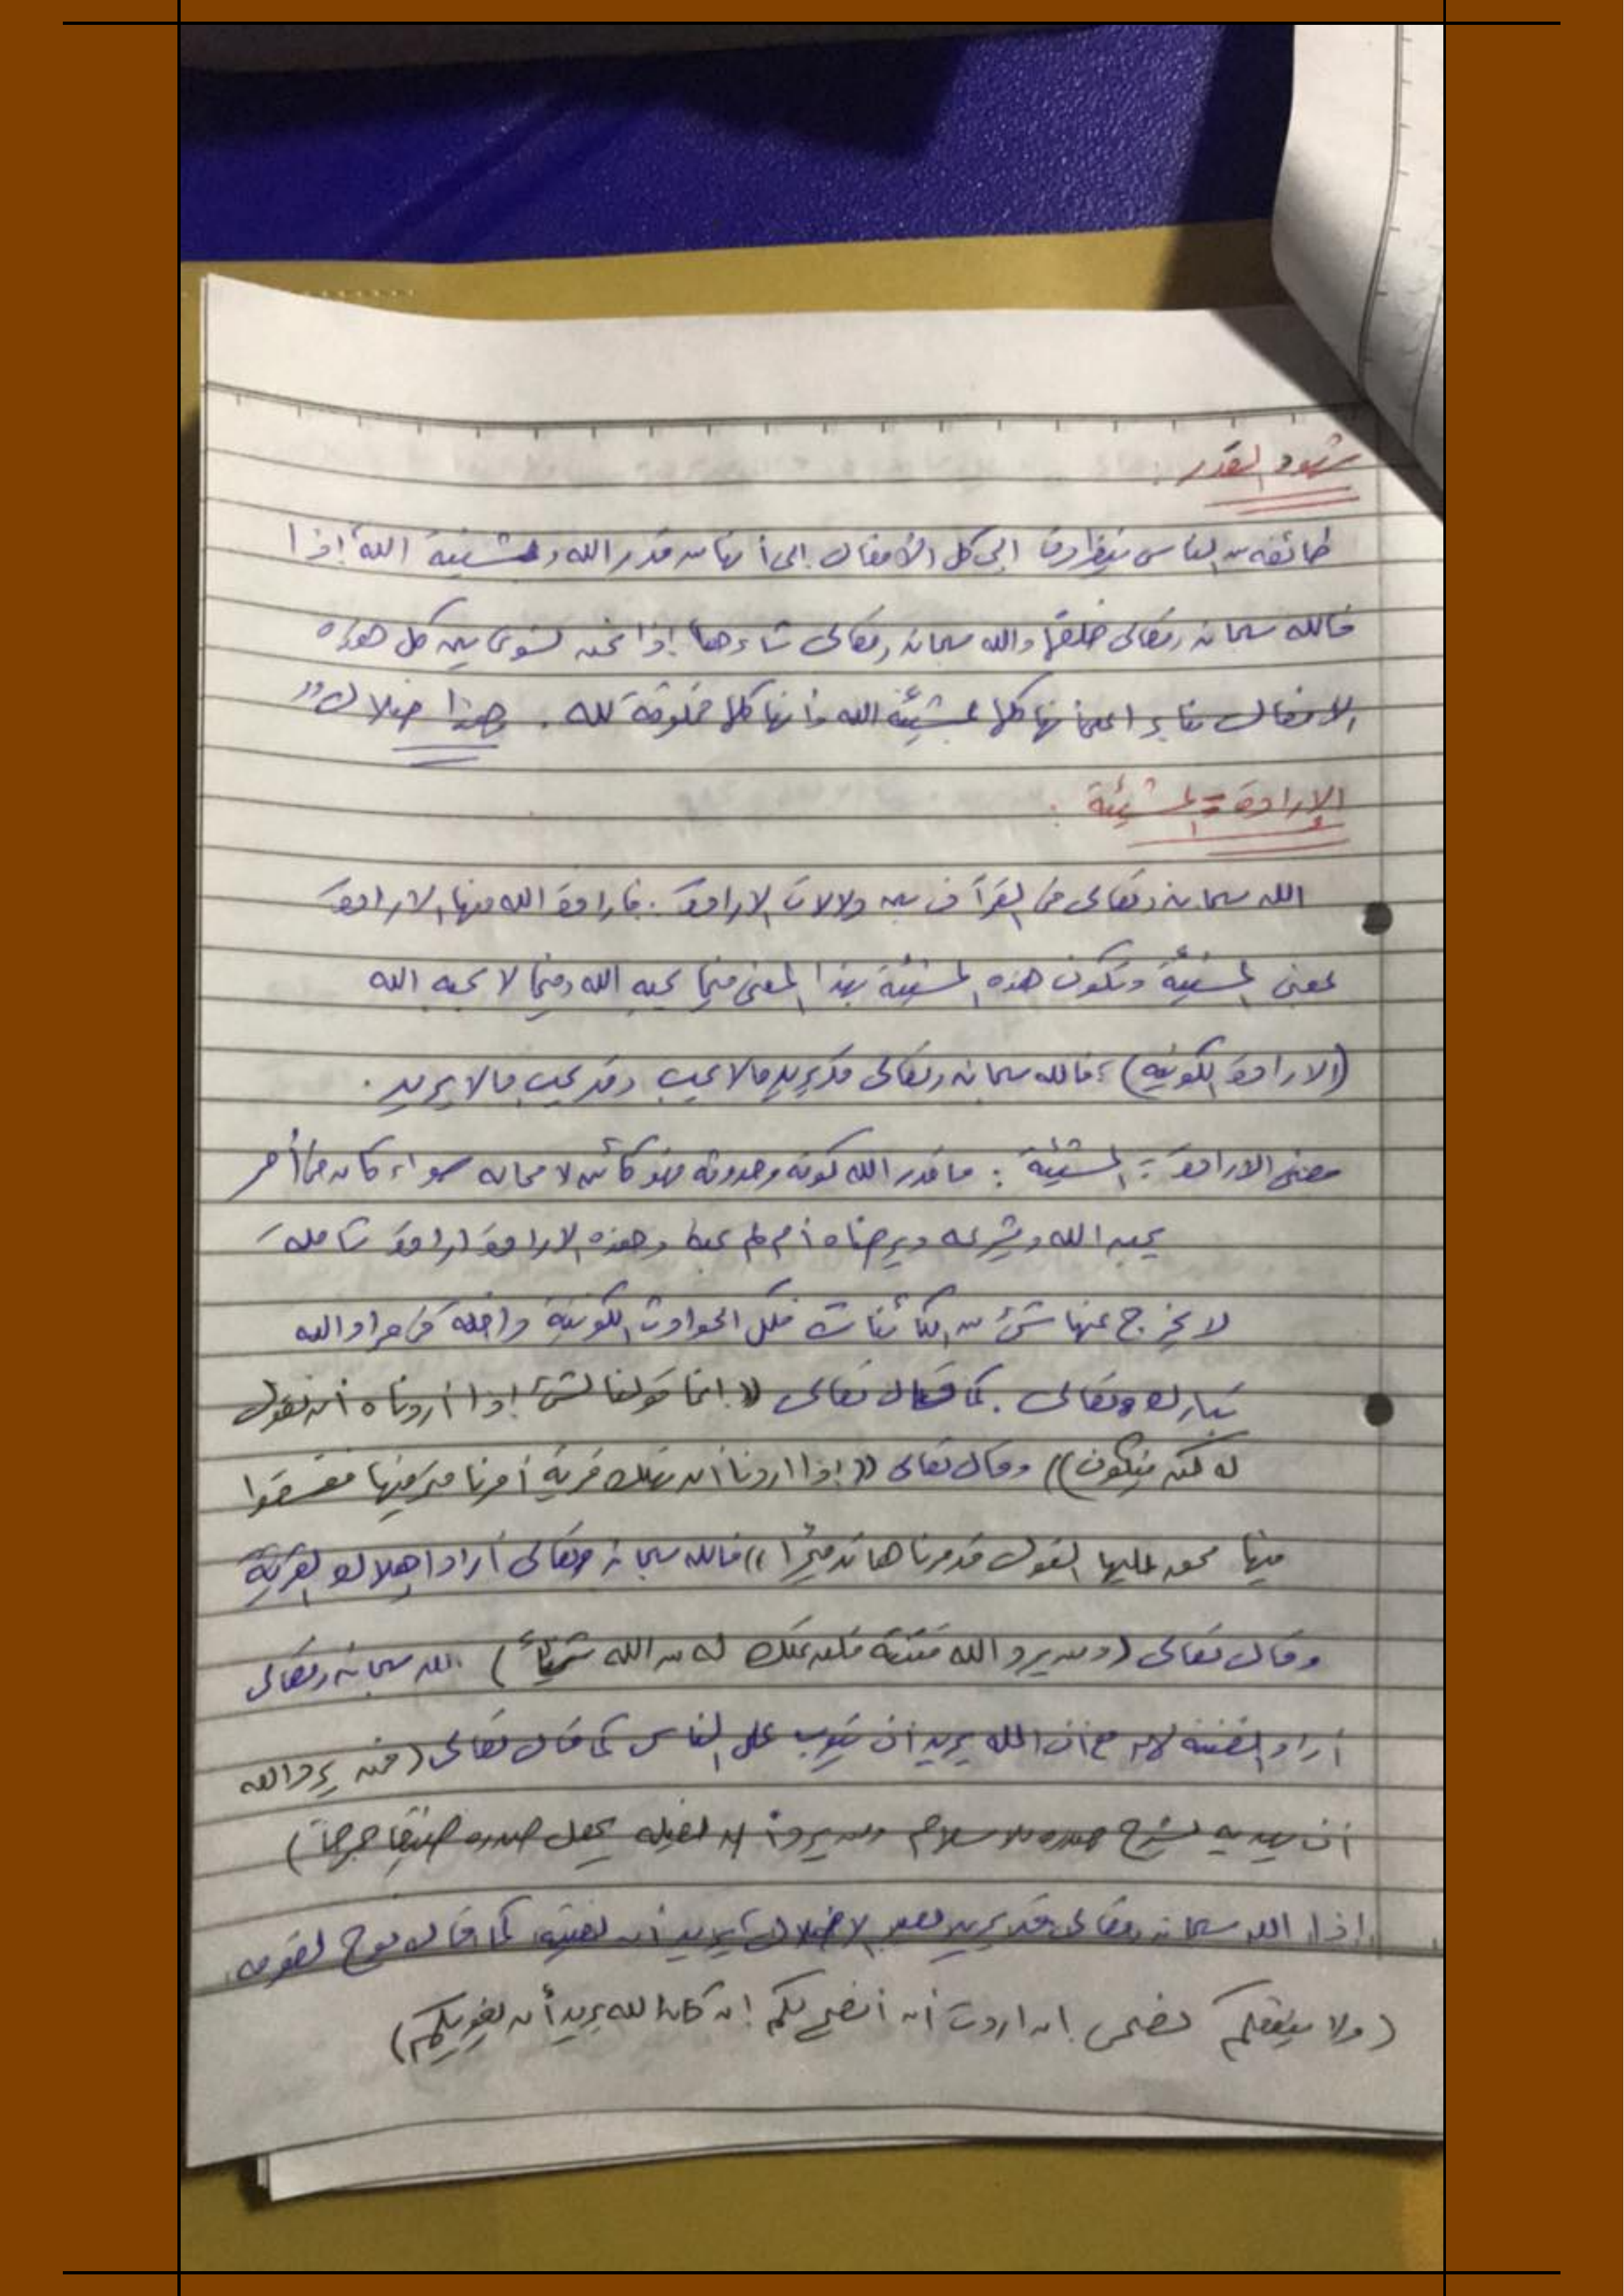 شهود القدر :
طائفة من الناس ينظرون الى كل الأفعال الى أنها من قدر الله ومشيئة الله إذا
فالله سبحانه وتعالى خلقها والله سبحانه وتعالى شاءها إذا نحن نسوي بين كل هذه
الافعال بناءا على أنها كلها بمشيئة الله وأنها كلها مخلوقة لله . وهذا ضلال ,,
الإرادة = المشيئة :
الله سبحانه وتعالى في القرآن بين دلالات الارادة . فارادة الله منها الارادة
بمعنى المشيئة وتكون هذه المشيئة بهذا المعنى فيما يحبه الله وفيما لا يحبه الله
(الارادة الكونية) ، فالله سبحانه وتعالى قد يريد مالا يحب وقد يحب مالا يريد .
معنى الارادة = المشيئة : ما قدر الله كونه وحدوثه فهو كائن لا محاله سواء كان مما أمر
يحبه الله ويشرعه ويرضاه أم لم يحبه وهذه الارادة ارادة شامله
لا يخرج عنها شئ من الكائنات فكل الحوادث الكونية داخلة في مراد الله
تبارك وتعالى . كما قال تعالى (( إنما قولنا لشئ إذا أردناه أن نقول
له كن فيكون)) وقال تعالى ((إذا اردنا أن نهلك قرية أمرنا مترفيها ففسقوا
فيها فحق عليها القول فدمرناها تدميرا )) فالله سبحانه وتعالى أراد إهلاك القرية
وقال تعالى (ومن يرد الله فتنته فلن تملك له من الله شيئاً ) الله سبحانه وتعالى
أراد الفتنة مع أن الله يريد أن يتوب على الناس كما قال تعالى (فمن يرد الله
أن يهديه يشرح صدره للاسلام ومن يرد أن يضله يجعل صدره ضيقا حرجاً )
إذا الله سبحانه وتعالى قد يريد الإضلال يريد أن كما قال نوح لقومه
(ولا ينفعكم نصحى إن اردت أن أنصح لكم إن كان الله يريد أن يغويكم)